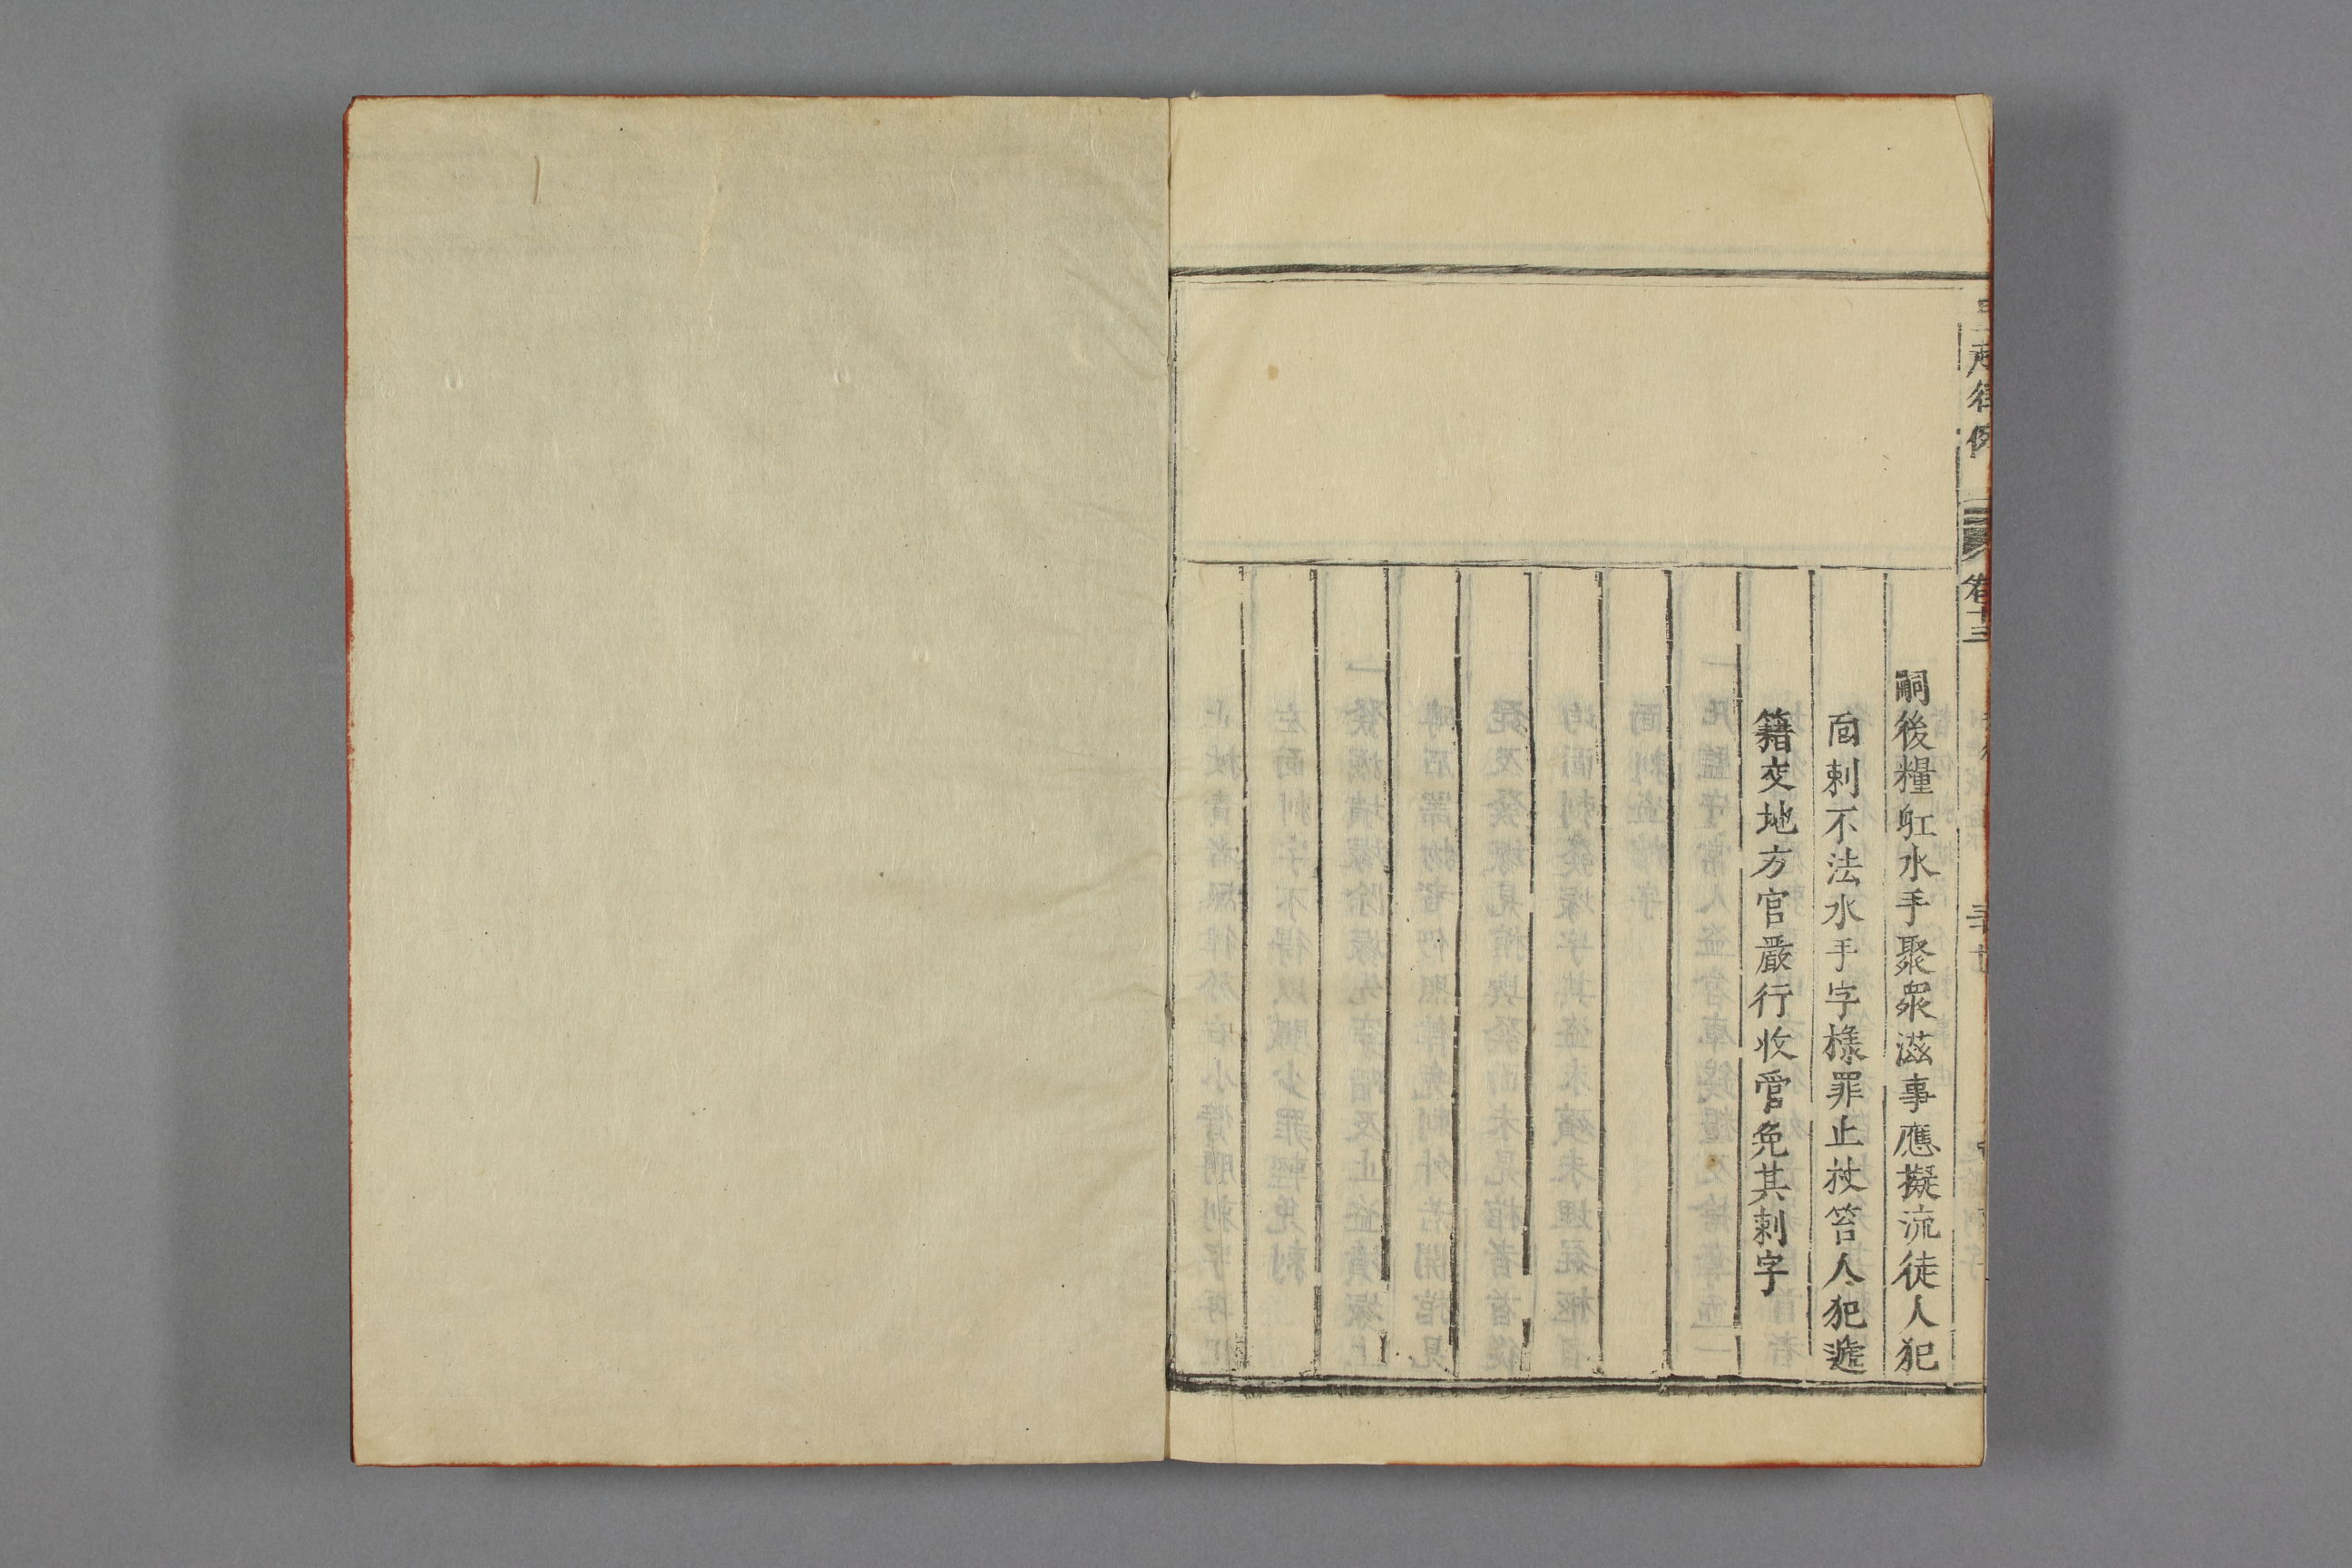 律例
卷十三
嗣後糧舡水手聚衆滋事應擬流徒人犯
面刺不法水手字樣罪止杖笞人犯遞
籍交地方官嚴行收管免其刺字